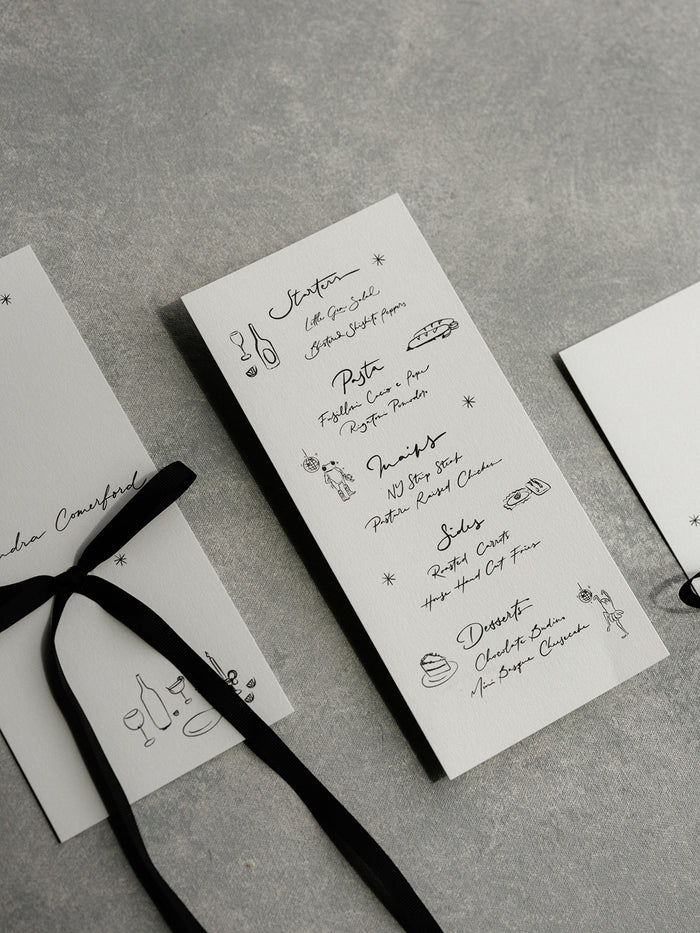 ndra Comerford
Starters
Little Gem Salad
Blistered Shishito Peppers
Pasta
Fusilloni Cacio e Pepe
Rigatoni Pomodoro
Mains
NY Strip Steak
Pasture Raised Chicken
Sides
Roasted Carrots
House Hand Cut Fries
Desserts
Chocolate Budino
Mini Basque Cheesecake